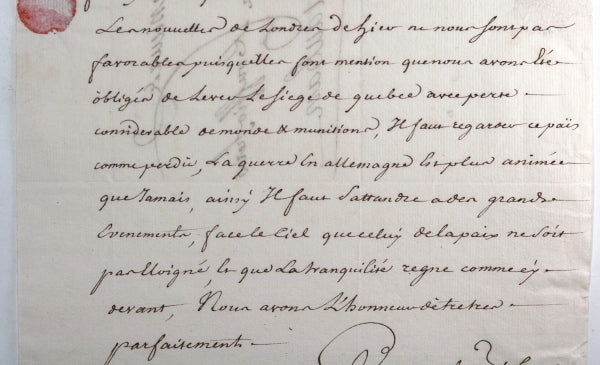 Les nouvelles de Londres de hier ne nous sont pas
favorables puisquelles font mention que nous avons Eté
obligés de Lever Le Siege de quebec avec perte
considerable de monde & munitions, Il faut regarder ce païs
comme perdû, La guerre En allemagne Est plus animée
que Jamais, ainsÿ Il faut Sattandre a des grands
Evenements, face le Ciel que celuÿ de la paix ne Soit
pas Eloigné, Et que La tranquilité regne comme cÿ
devant, Nous avons L'honneur dêtre tres
parfaitement